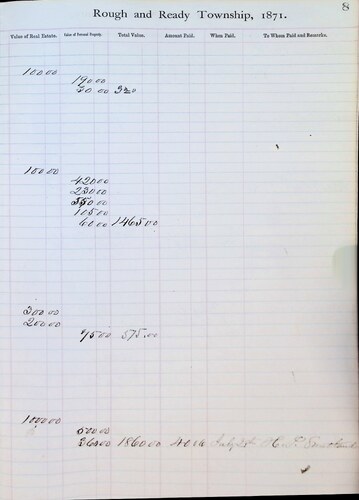 Rough and Ready Township, 1871.
8
Value of Real Estate. Value of Personal Property. Total Value. Amount Paid. When Paid. To Whom Paid and Remarks.
100 00
190 00
30 00 320
100 00
420 00
230 00
550 00
105 00
60 00 1465 00
300 00
200 00
75 00 575 00
1000 00
500 00
360 00 1860 00 July